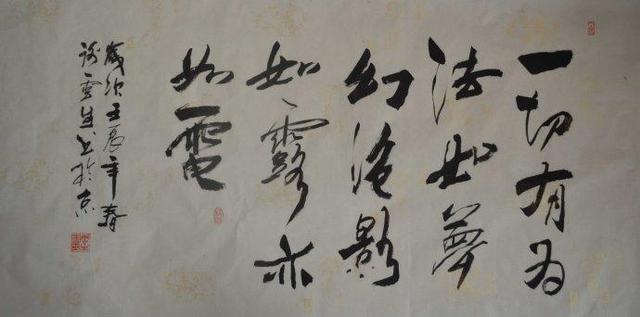 一切有為
法如夢
幻泡影
如露亦
如電
歲次壬辰年春
謝雲生書於京